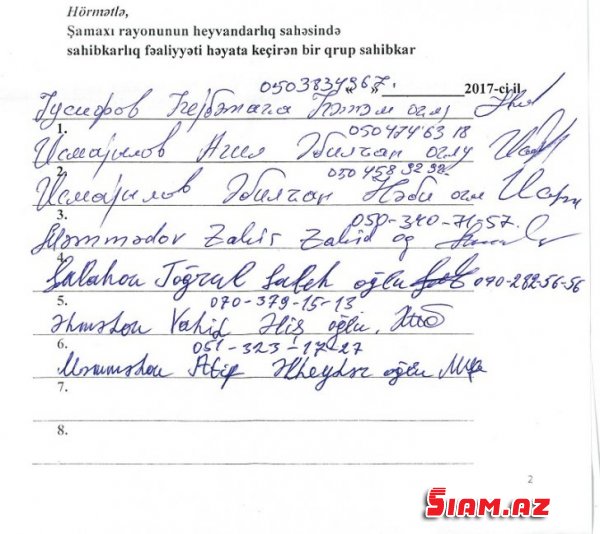 Hörmətlə,
Şamaxı rayonunun heyvandarlıq sahəsində
sahibkarlıq fəaliyyəti həyata keçirən bir qrup sahibkar
0503834967.
« » 2017-ci il
Јусифов оғлу
1. 0504746318
Исмајылов Агил Әбилчан оғлу
2. 050 458 32 32
Исмајылов Әбилчан Нәби оғлу
3. 050-340-71-57
Məmmədov Zakir Zahid oğ
4.
Salahov Toğrul Saleh oğlu 070-282-56-56
5. 070-379-15-13
Əhmədov Vahid oğlu
6. 051-323-17-27
Məmmədov Atif Əlheydər oğlu
7.
8.
2
SIAM.AZ